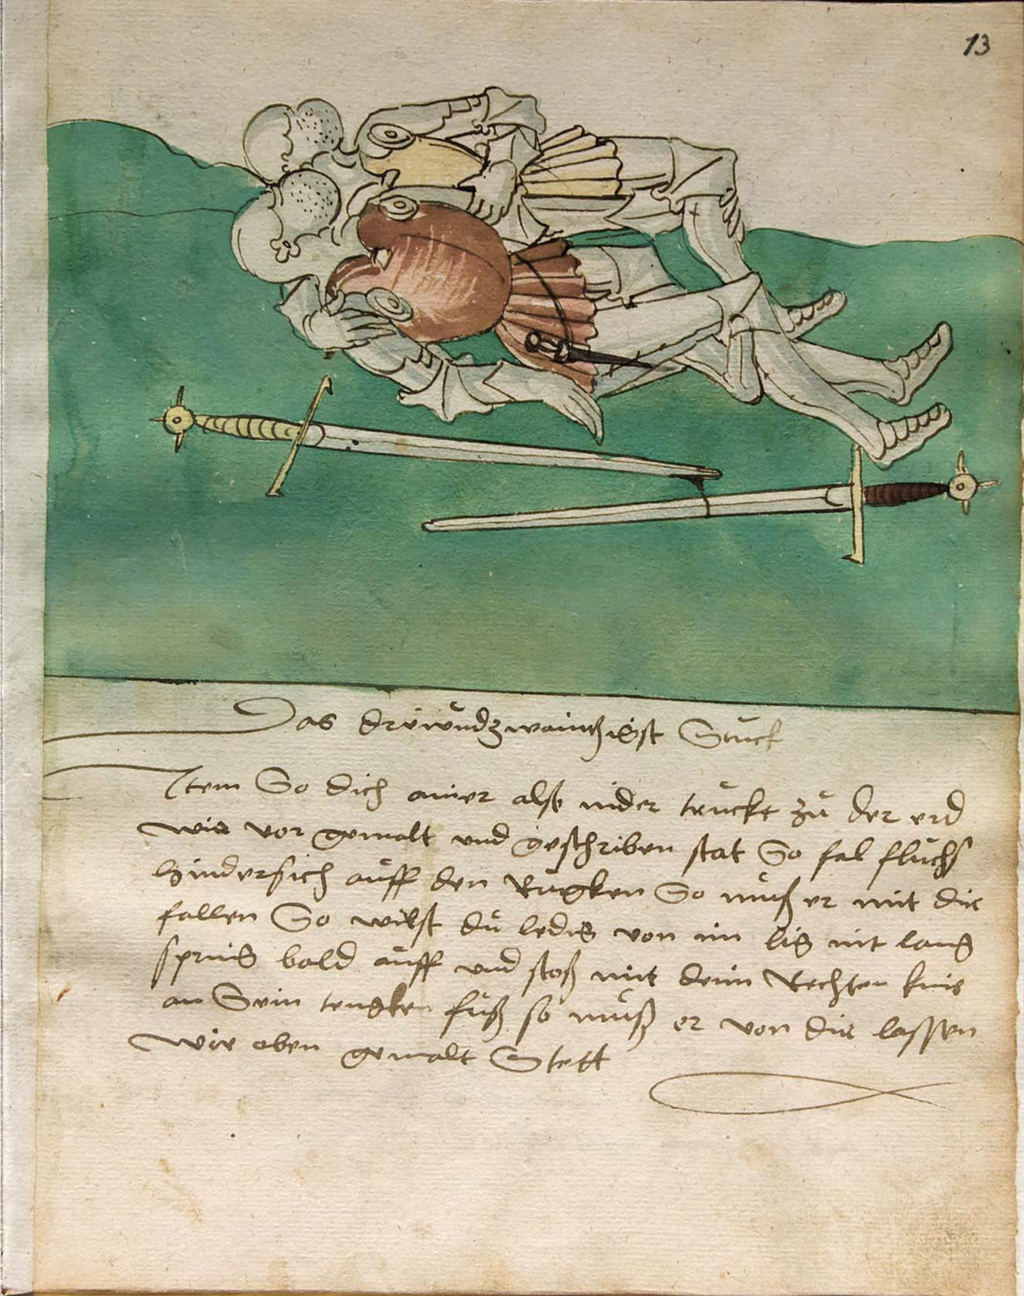 13
Das dreẃundzwaintzigist Stuck
Item So dich ainer alsẞ nider truckt zu der erd
wie vor gemalt und geschriben stat So fal fluchs
hindersich auff den Rugken So muß er mit dir
fallen So wilst du ledig von im lig nit lang
spring bald auff und stoß mit deim Rechten knie
an Sein tengken fuß so muß er von dir lassen
wie oben gemalt Stett